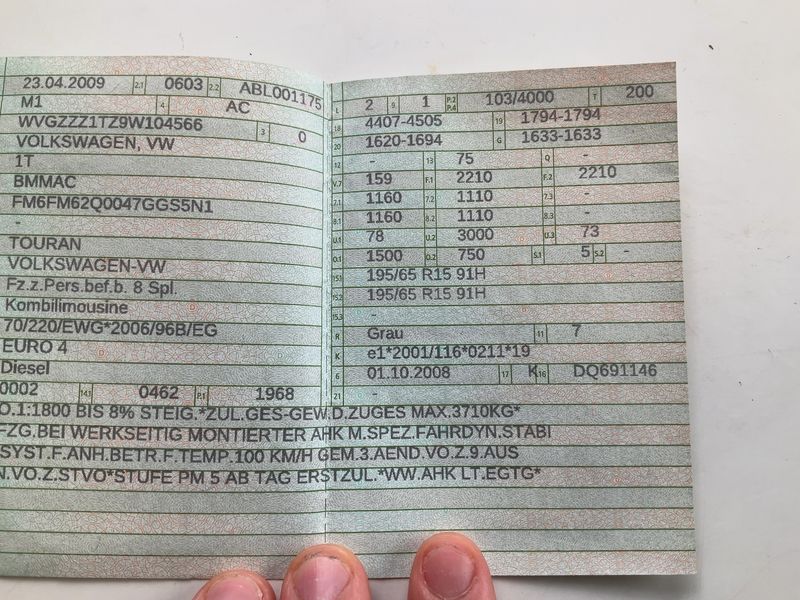 23.04.2009 2.1 0603 2.2 ABL001175
M1 4 AC
WVGZZZ1TZ9W104566 3 0
VOLKSWAGEN, VW
1T
BMMAC
FM6FM62Q0047GGS5N1
-
TOURAN
VOLKSWAGEN-VW
Fz.z.Pers.bef.b. 8 Spl.
Kombilimousine
70/220/EWG*2006/96B/EG
EURO 4
Diesel
0002 14.1 0462 P.1 1968
L 2 9 1 P.2 P.4 103/4000 T 200
18 4407-4505 19 1794-1794
20 1620-1694 G 1633-1633
12 - 13 75 Q -
V.7 159 F.1 2210 F.2 2210
7.1 1160 7.2 1110 7.3 -
8.1 1160 8.2 1110 8.3 -
U.1 78 U.2 3000 U.3 73
O.1 1500 O.2 750 S.1 5 S.2 -
15.1 195/65 R15 91H
15.2 195/65 R15 91H
15.3 -
R Grau 11 7
K e1*2001/116*0211*19
6 01.10.2008 17 K 16 DQ691146
21 -
O.1:1800 BIS 8% STEIG.*ZUL.GES-GEW.D.ZUGES MAX.3710KG*
FZG.BEI WERKSEITIG MONTIERTER AHK M.SPEZ.FAHRDYN.STABI
SYST.F.ANH.BETR.F.TEMP.100 KM/H GEM.3.AEND.VO.Z.9.AUS
N.VO.Z.STVO*STUFE PM 5 AB TAG ERSTZUL.*WW.AHK LT.EGTG*